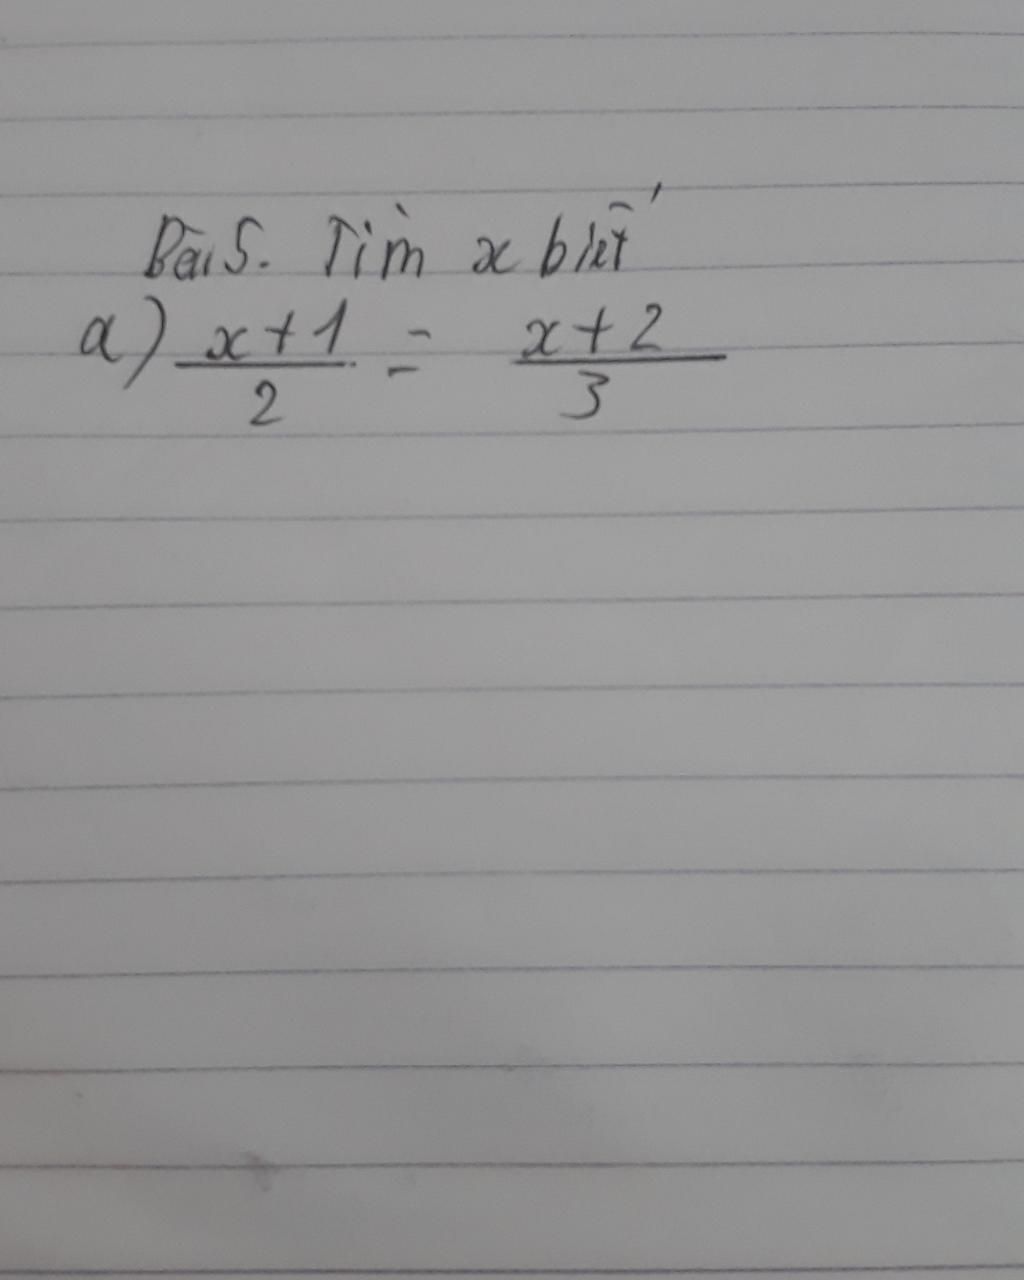 Bài 5. Tìm x biết
a) \frac{x+1}{2} = \frac{x+2}{3}